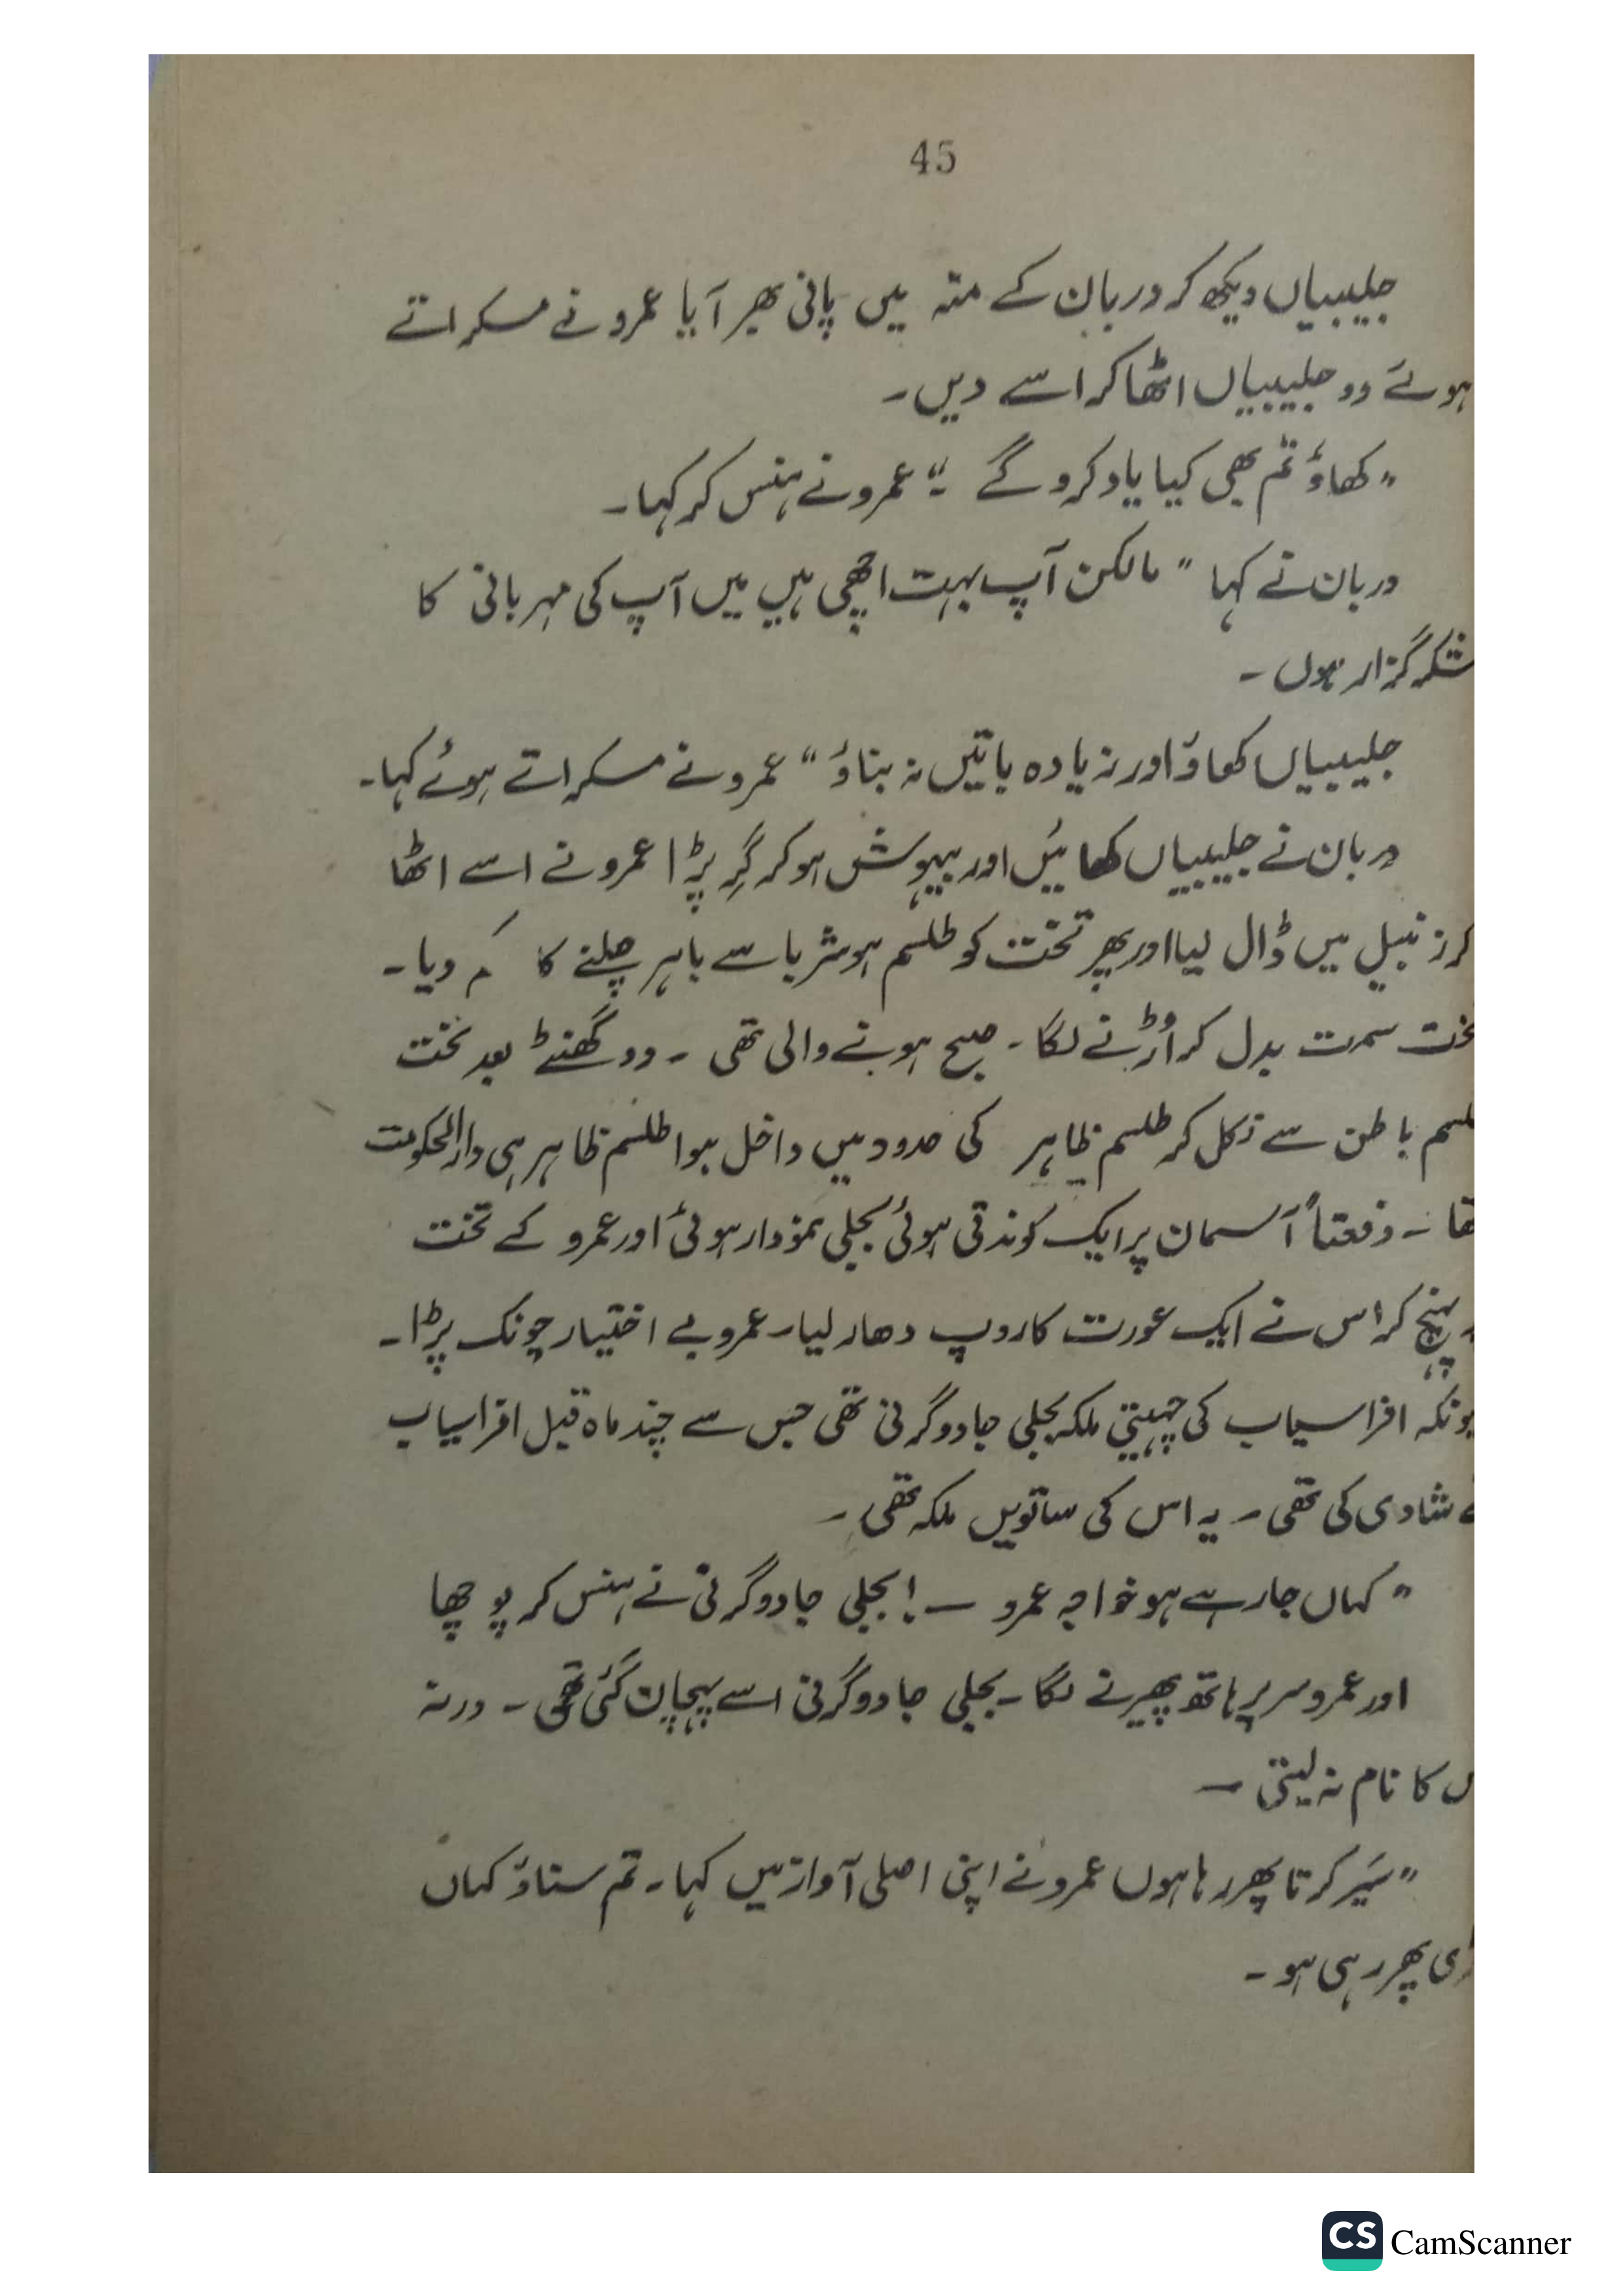 45
جلیبیاں دیکھ کر دربان کے منہ میں پانی بھر آیا عمرو نے مسکراتے
ہوئے دو جلیبیاں اٹھا کر اسے دیں۔
"کھاؤ تم بھی کیا یاد کرو گے"۔ عمرو نے ہنس کر کہا۔
دربان نے کہا "مالکن آپ بہت اچھی ہیں میں آپ کی مہربانی کا
شکر گزار ہوں۔
جلیبیاں کھاؤ اور زیادہ باتیں نہ بناؤ" عمرو نے مسکراتے ہوئے کہا۔
دربان نے جلیبیاں کھائیں اور بیہوش ہو کر گِر پڑا عمرو نے اسے اٹھا
کر زنبیل میں ڈال لیا اور پھر تخت کو طلسم ہوشربا سے باہر چلنے کا دیا۔
سمت بدل کر اُڑنے لگا۔ صبح ہونے والی تھی۔ دو گھنٹے بعد تخت
باطن سے نکل کر طلسم ظاہر کی حدود میں داخل ہوا طلسم ظاہر ہی دارالحکومت
تھا۔ دفعتاً آسمان پر ایک کوندتی ہوئی بجلی نمودار ہوئی اور عمرو کے تخت
پہنچ کر اس نے ایک عورت کا روپ دھار لیا۔ عمرو بے اختیار چونک پڑا۔
افراسیاب کی چہیتی ملکہ بجلی جادوگرنی تھی جس سے چند ماہ قبل افراسیاب
شادی کی تھی۔ یہ اس کی ساتویں ملکہ تھی۔
"کہاں جا رہے ہو خواجہ عمرو —! بجلی جادوگرنی نے ہنس کر پوچھا
اور عمرو سر پر ہاتھ پھیرنے لگا۔ بجلی جادوگرنی اسے پہچان گئی تھی۔ ورنہ
کا نام نہ لیتی —
"سَیر کرتا پھر رہا ہوں عمرو نے اپنی اصلی آواز میں کہا۔ تم سناؤ کہاں
پھر رہی ہو۔
CS CamScanner